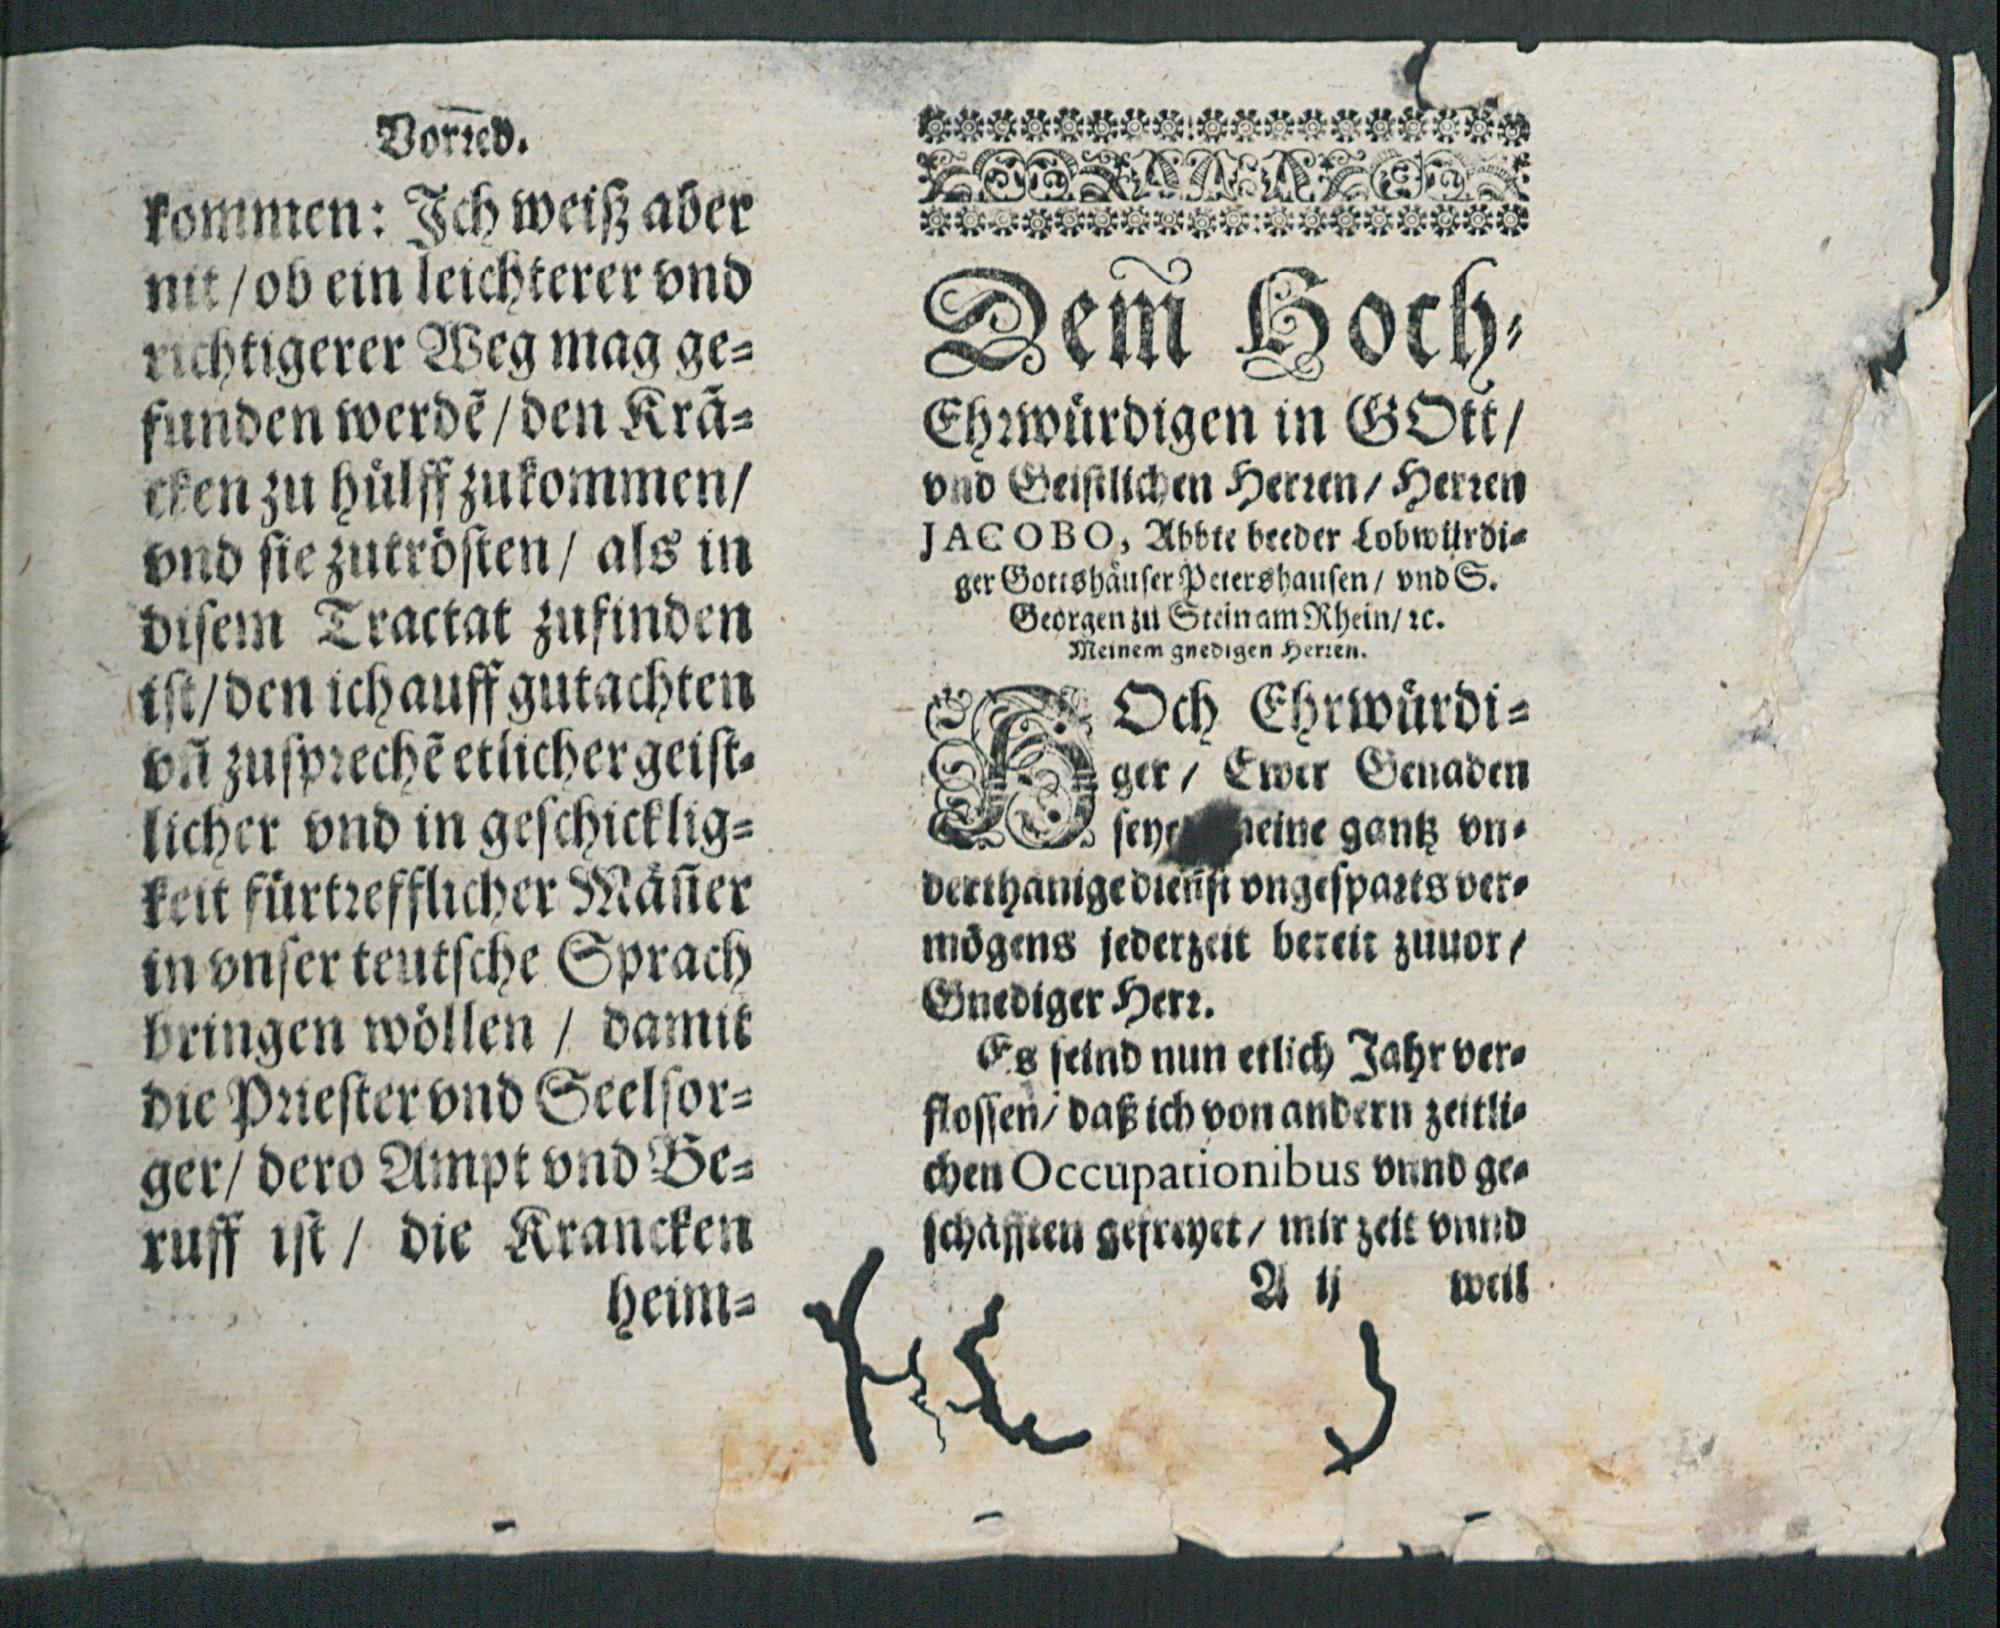 Vorred.
kommen: Ich weiß aber
nit / ob ein leichterer vnd
richtigerer Weg mag ge-
funden werdẽ / den Krã-
cken zu hülff zukommen /
vnd sie zutrösten / als in
disem Tractat zufinden
ist / den ich auff gutachten
vñ zusprechẽ etlicher geist-
licher vnd in geschicklig-
keit fürtrefflicher Mäñer
in vnser teutsche Sprach
bringen wöllen / damit
die Priester vnd Seelsor-
ger / dero Ampt vnd Be-
ruff ist / die Krancken
heim-
Dem̃ Hoch-
Ehrwürdigen in GOtt /
vnd Geistlichen Herren / Herren
JACOBO, Abbte beeder Lobwürdi-
ger Gottshäuser Petershausen / vnd S.
Georgen zu Stein am Rhein / ꝛc.
Meinem gnedigen Herren.
HOch Ehrwürdi-
ger / Ewer Genaden
gantz vn-
derthänige dienst vngesparts ver-
mögens jederzeit bereit zuuor /
Gnediger Herr.
Es seind nun etlich Jahr ver-
flossen / daß ich von andern zeitli-
chen Occupationibus vnnd ge-
schäfften gefreyet / mir zeit vnnd
A ij weil